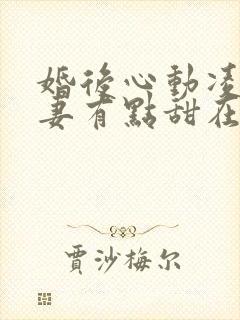 婚後心動凌
妻有點甜在
賈沙梅尔